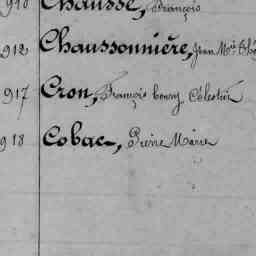 910 Chausse, François
912 Chaussonnière, Jean Mie
917 Cron, François Henry Célestin
918 Cobac, Pierre Marie